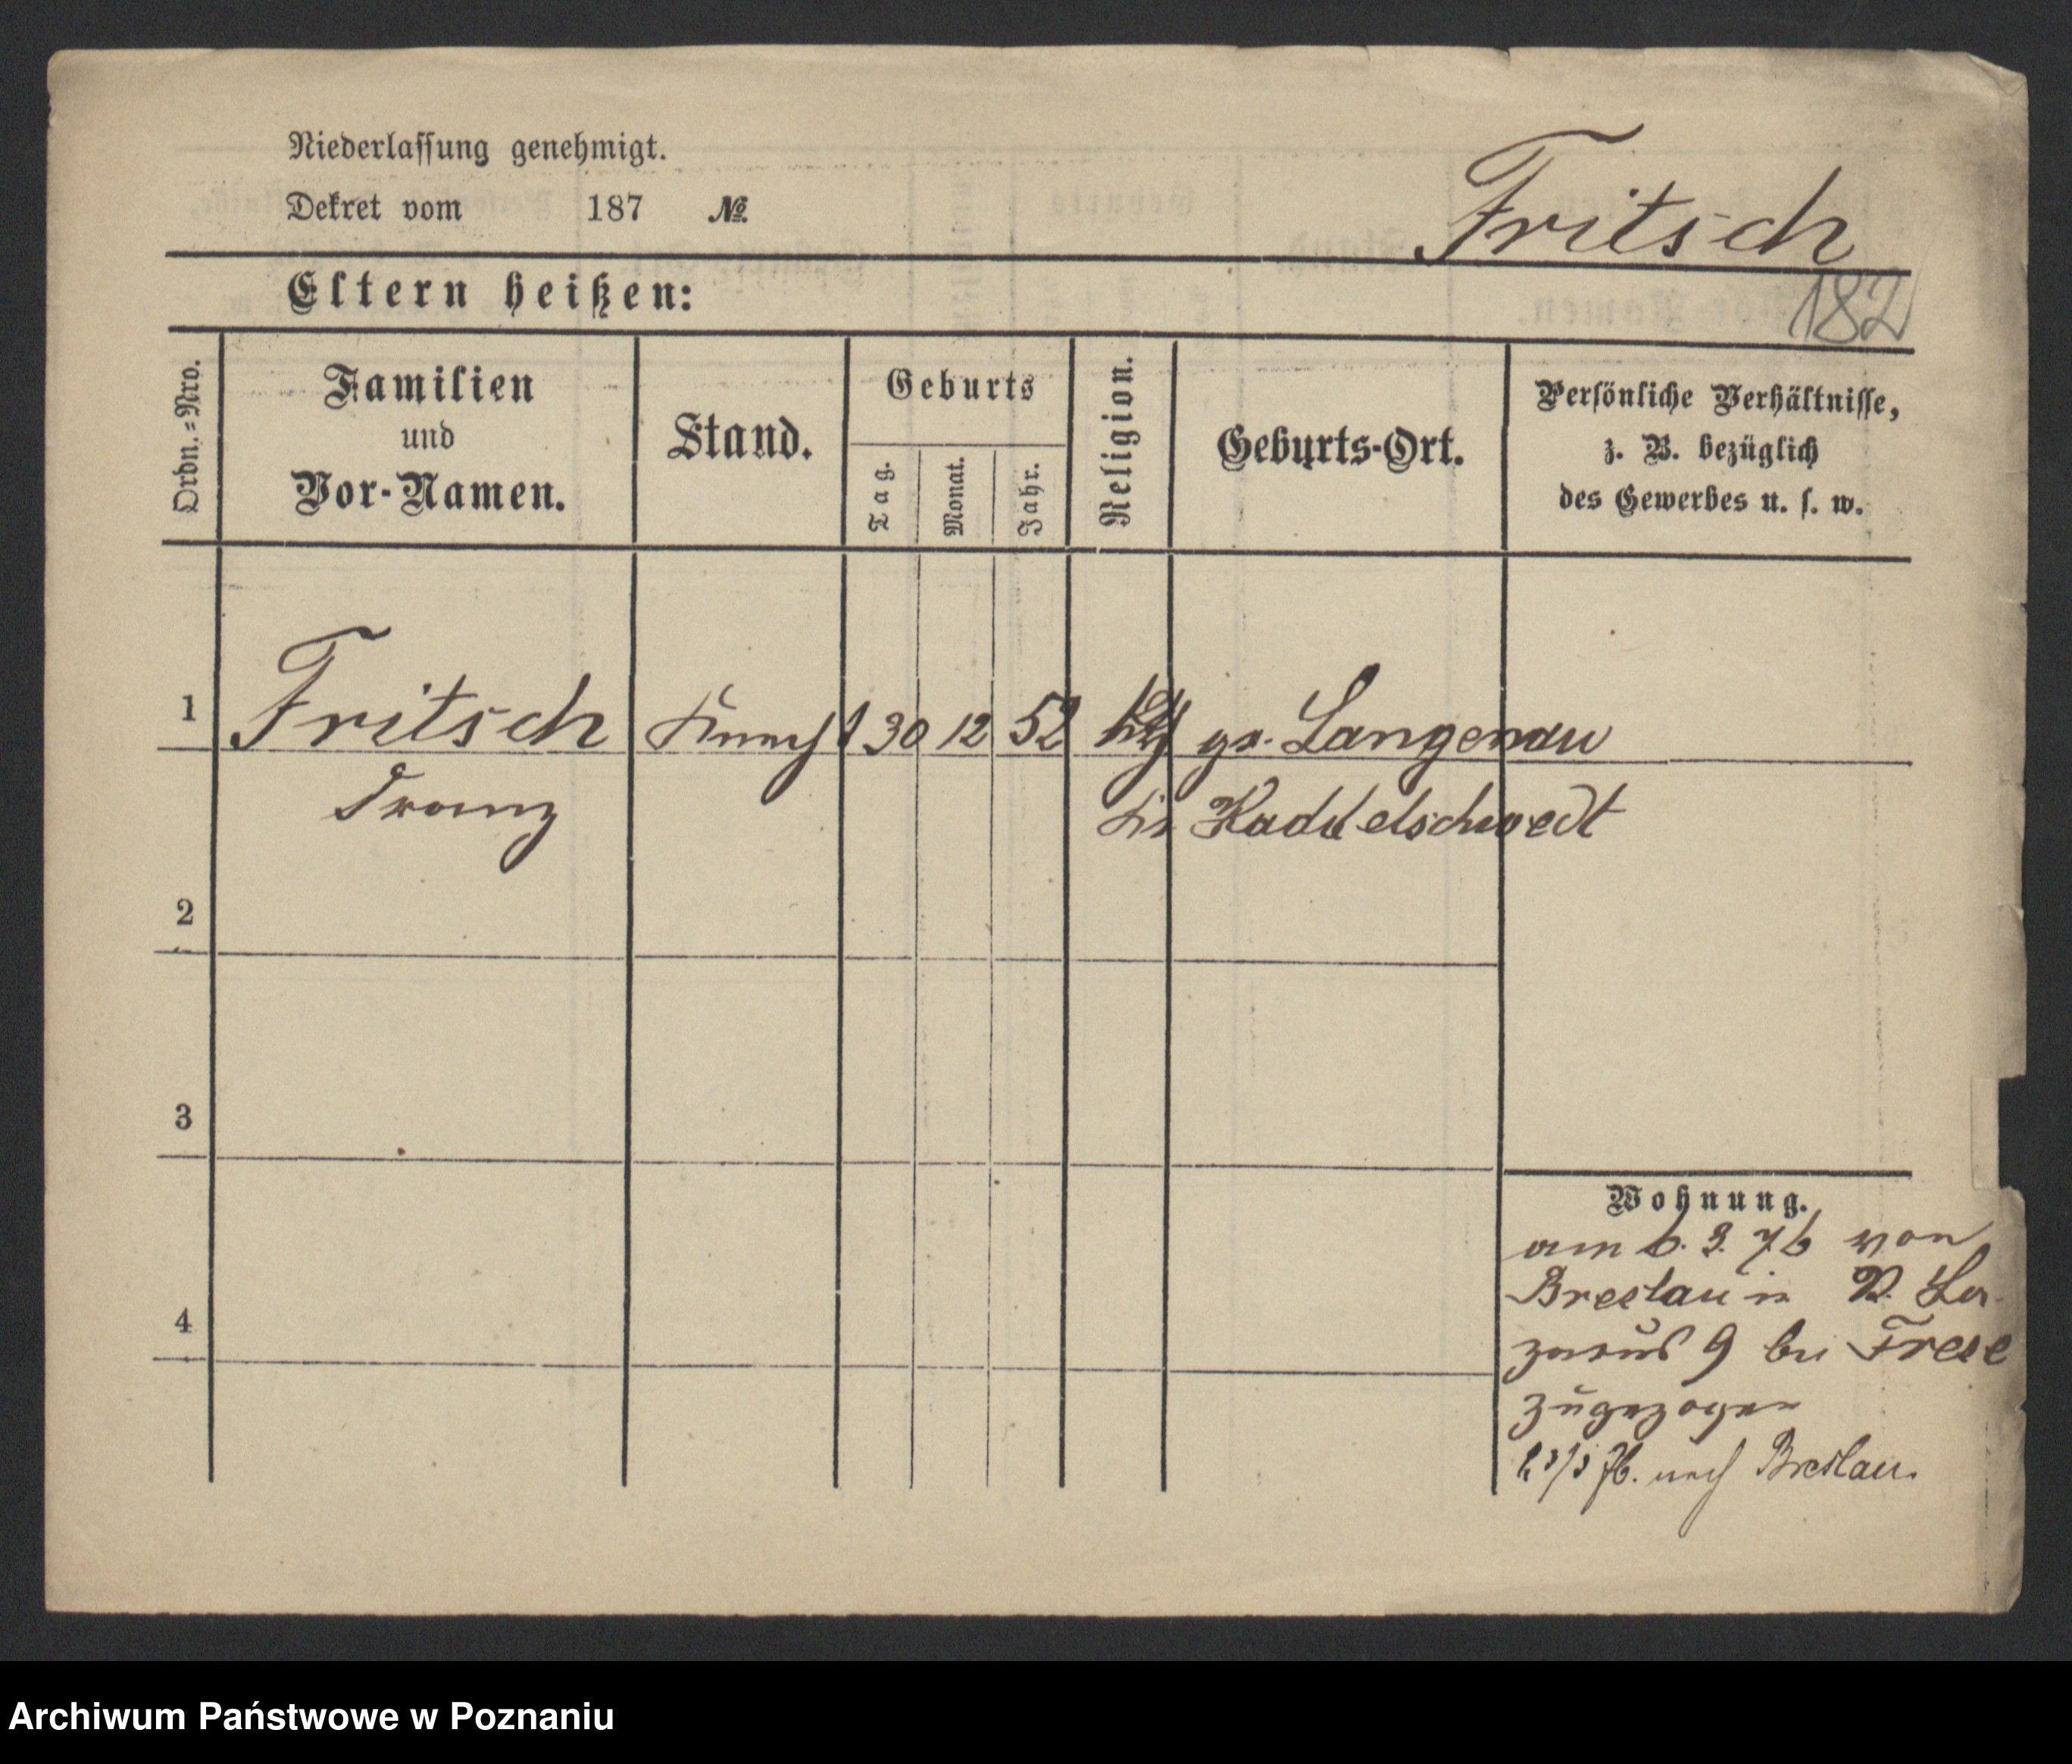 Niederlassung genehmigt.
Dekret vom 187 №
Fritsch
Eltern heißen:
182
Ordn.=Nro.
Familien
und
Vor-Namen.
Stand.
Geburts
Tag.
Monat.
Jahr.
Religion.
Geburts-Ort.
Persönliche Verhältnisse,
z. B. bezüglich
des Gewerbes u. s. w.
1 Fritsch Knecht 30 12 52 kth gr. Langenau
Franz Kr. Haddelschwedt
2
3
4
Wohnung.
am 6. 3. 76 von
Breslau n P. La-
zarus 9 bei Frese
zugezogen
76. nach Breslau.